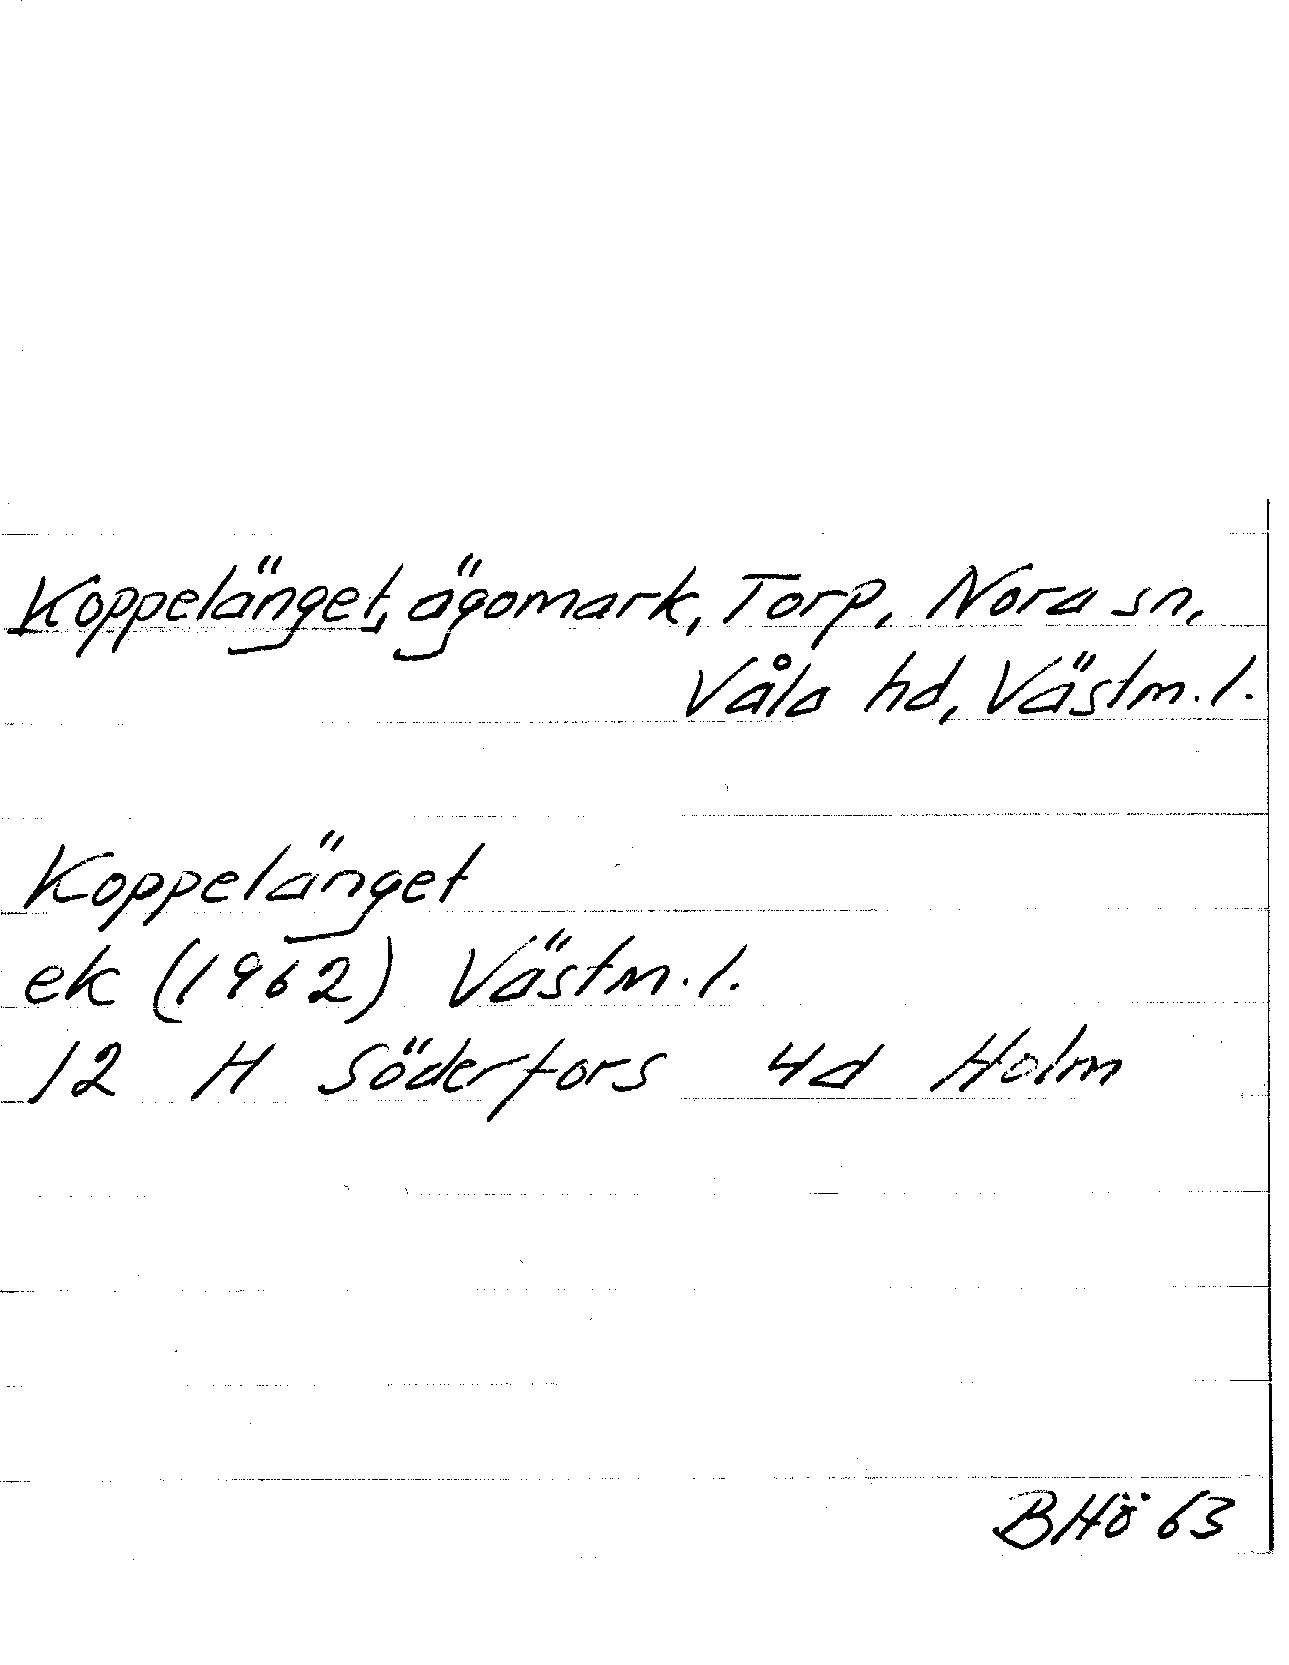 Koppelänget, ägomark, Torp, Nora sn,
Våla hd, Västm. l.
Koppelänget
ek (1962) Västm. l.
12 H Söderfors 4d Holm
BHö 63